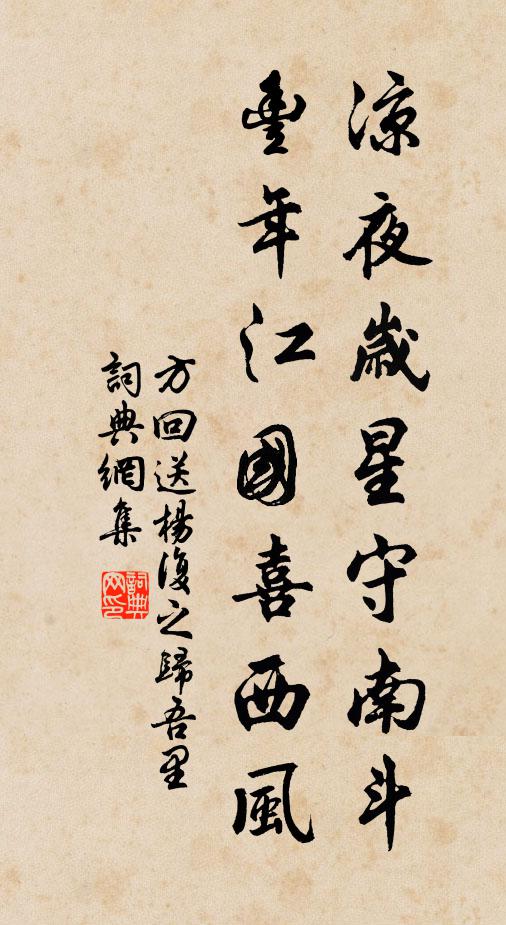 涼夜歲星守南斗
豐年江國喜西風
方回送楊復之歸吾里
詞典網集
詞典
网印